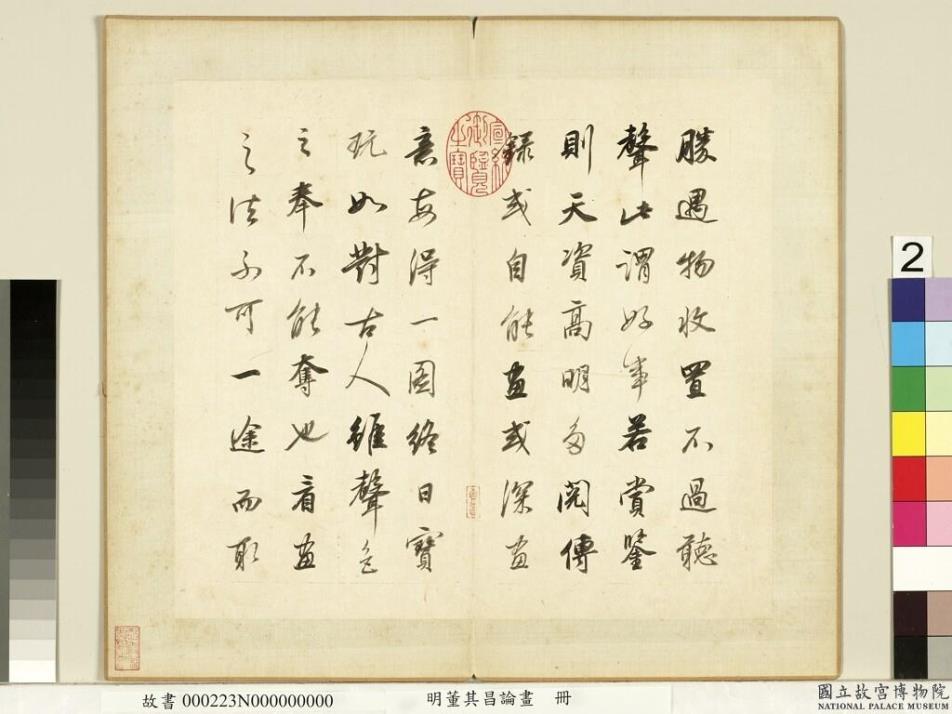 勝遇物收置不過聽
聲此謂好事若賞鑒
則天資高明多閱傳
錄或自能畫或深畫
意每得一圖終日寶
玩如對古人雖聲色
之奉不能奪也看畫
之法不可一途而取
宣統御覽之寶
2
故書 000223N000000000
明董其昌論畫 冊
國立故宮博物院
NATIONAL PALACE MUSEUM